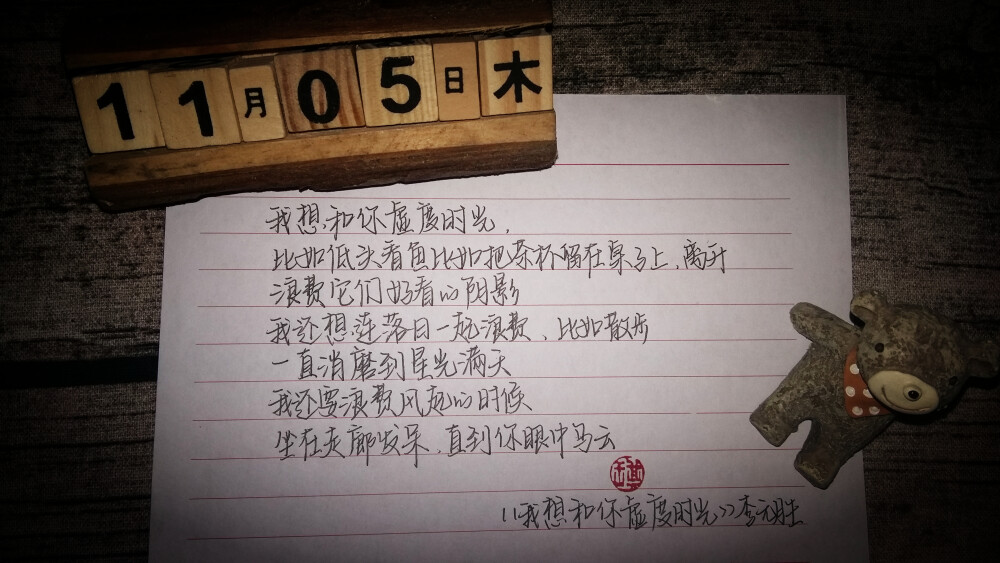 11月05日木
我想和你虚度时光，
比如低头看鱼比如把茶杯留在桌子上、离开
浪费它们好看的阴影
我还想连落日一起浪费、比如散步
一直消磨到星光满天
我还要浪费风起的时候
坐在走廊发呆、直到你眼中乌云
《我想和你虚度时光》李元胜